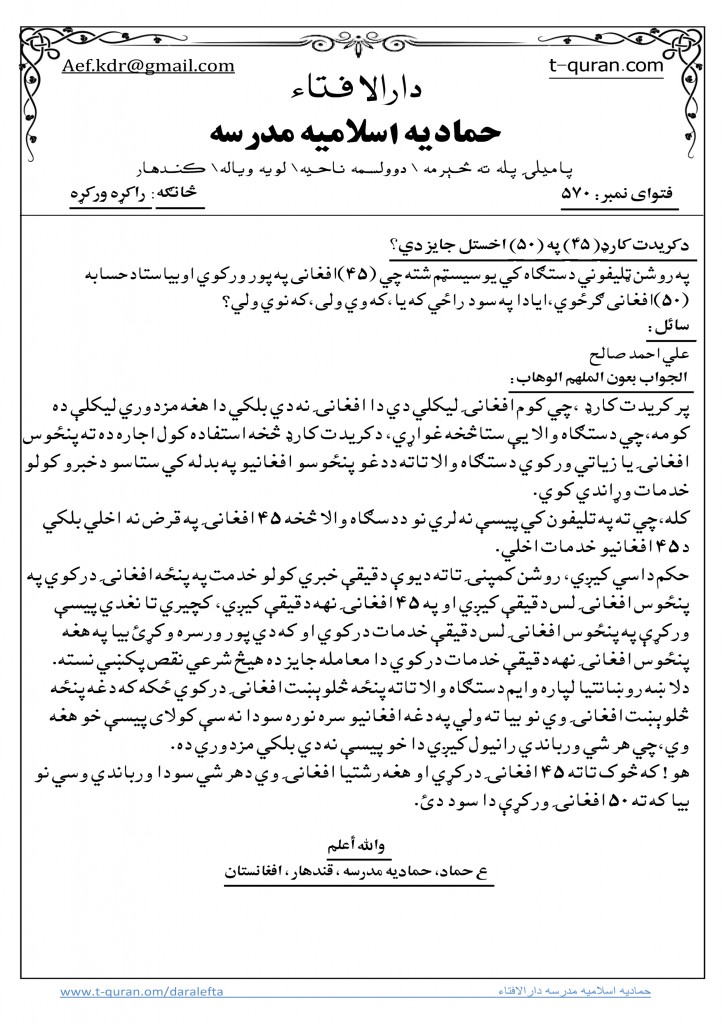 Aef.kdr@gmail.com
t-quran.com
دارالافتاء
حمادیه اسلامیه مدرسه
پامیلۍ پله ته څېرمه \ دوولسمه ناحیه\ لویه ویاله\ کندهار
فتوای نمبر: ۵۷۰
څانګه: راکړه ورکړه
دکریدت کارډ(۴۵) په (۵۰) اخستل جایز دي؟
په روشن ټلیفوني دستګاه کي یو سیسټم شته چي (۴۵)افغانی په پور ورکوي او بیا ستاد حسابه
(۵۰)افغانی ګرځوي، ایا دا په سود راځي که یا، که وي ولی، که نوي ولي؟
سائل:
علي احمد صالح
الجواب بعون الملهم الوهاب:
پر کریدت کارډ ،چي کوم افغانۍ لیکلي دي دا افغانۍ نه دي بلکي دا هغه مزدوري لیکلې ده
کومه،چي دستګاه والا یې ستا څخه غواړي، دکریدت کارډ څخه استفاده کول اجاره ده ته پنځوس
افغانۍ یا زیاتي ورکوي دستګاه والا تاته ددغو پنځوسو افغانیو په بدله کي ستاسو دخبرو کولو
خدمات وړاندي کوي.
کله،چي ته په تلیفون کي پیسې نه لري نو ددسګاه والا څخه ۴۵ افغانۍ په قرض نه اخلي بلکي
د۴۵ افغانیو خدمات اخلي.
حکم داسي کیږي، روشن کمپنۍ تاته دیوې دقیقې خبري کولو خدمت په پنځه افغانۍ درکوي په
پنځوس افغانۍ لس دقیقې کیږي او په ۴۵ افغانۍ نهه دقیقې کیږي، کچیري تا نغدي پیسې
ورکړې په پنځوس افغانۍ لس دقیقې خدمات درکوي او که دي پور ورسره وکړئ بیا په هغه
پنځوس افغانۍ نهه دقیقې خدمات درکوي دا معامله جایز ده هیڅ شرعي نقص پکښي نسته.
دلا ښه روښانتتیا لپاره وایم دستګاه والا تاته پنځه څلوېښت افغانۍ درکوي ځکه که دغه پنځه
څلوېښت افغانۍ وي نو بیا ته ولي په دغه افغانیو سره نوره سودا نه سې کولای پیسې خو هغه
وي،چي هر شي ورباندي رانیول کیږي دا خو پیسې نه دي بلکي مزدوري ده.
هو! که څوک تاته ۴۵ افغانۍ درکړي او هغه رشتیا افغانۍ وي دهر شي سودا ورباندي وسي نو
بیا که ته ۵۰ افغانۍ ورکړې دا سود دئ.
والله أعلم
ع حماد، حمادیه مدرسه ، قندهار، افغانستان
www.t-quran.om/daralefta
حمادیه اسلامیه مدرسه دارالافتاء